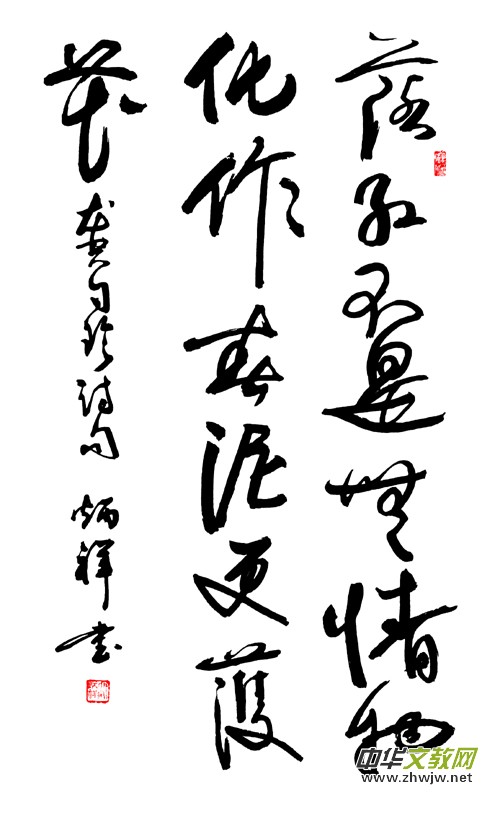 落红不是無情物
化作春泥更護
花 龚自珍诗句 炳祥书
中华文教网
www.zhwjw.net